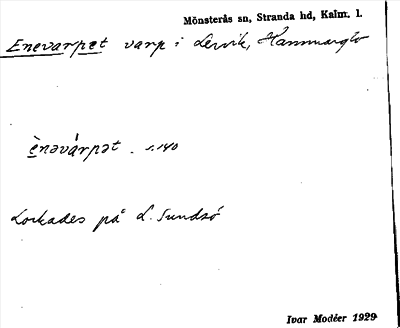 Mönsterås sn, Stranda hd, Kalm. l.
Enevarpet varp i Lervik, Hammarglo
ènəvárpət . s. 140
Lockades på L. Sundsö
Ivar Modéer 1929